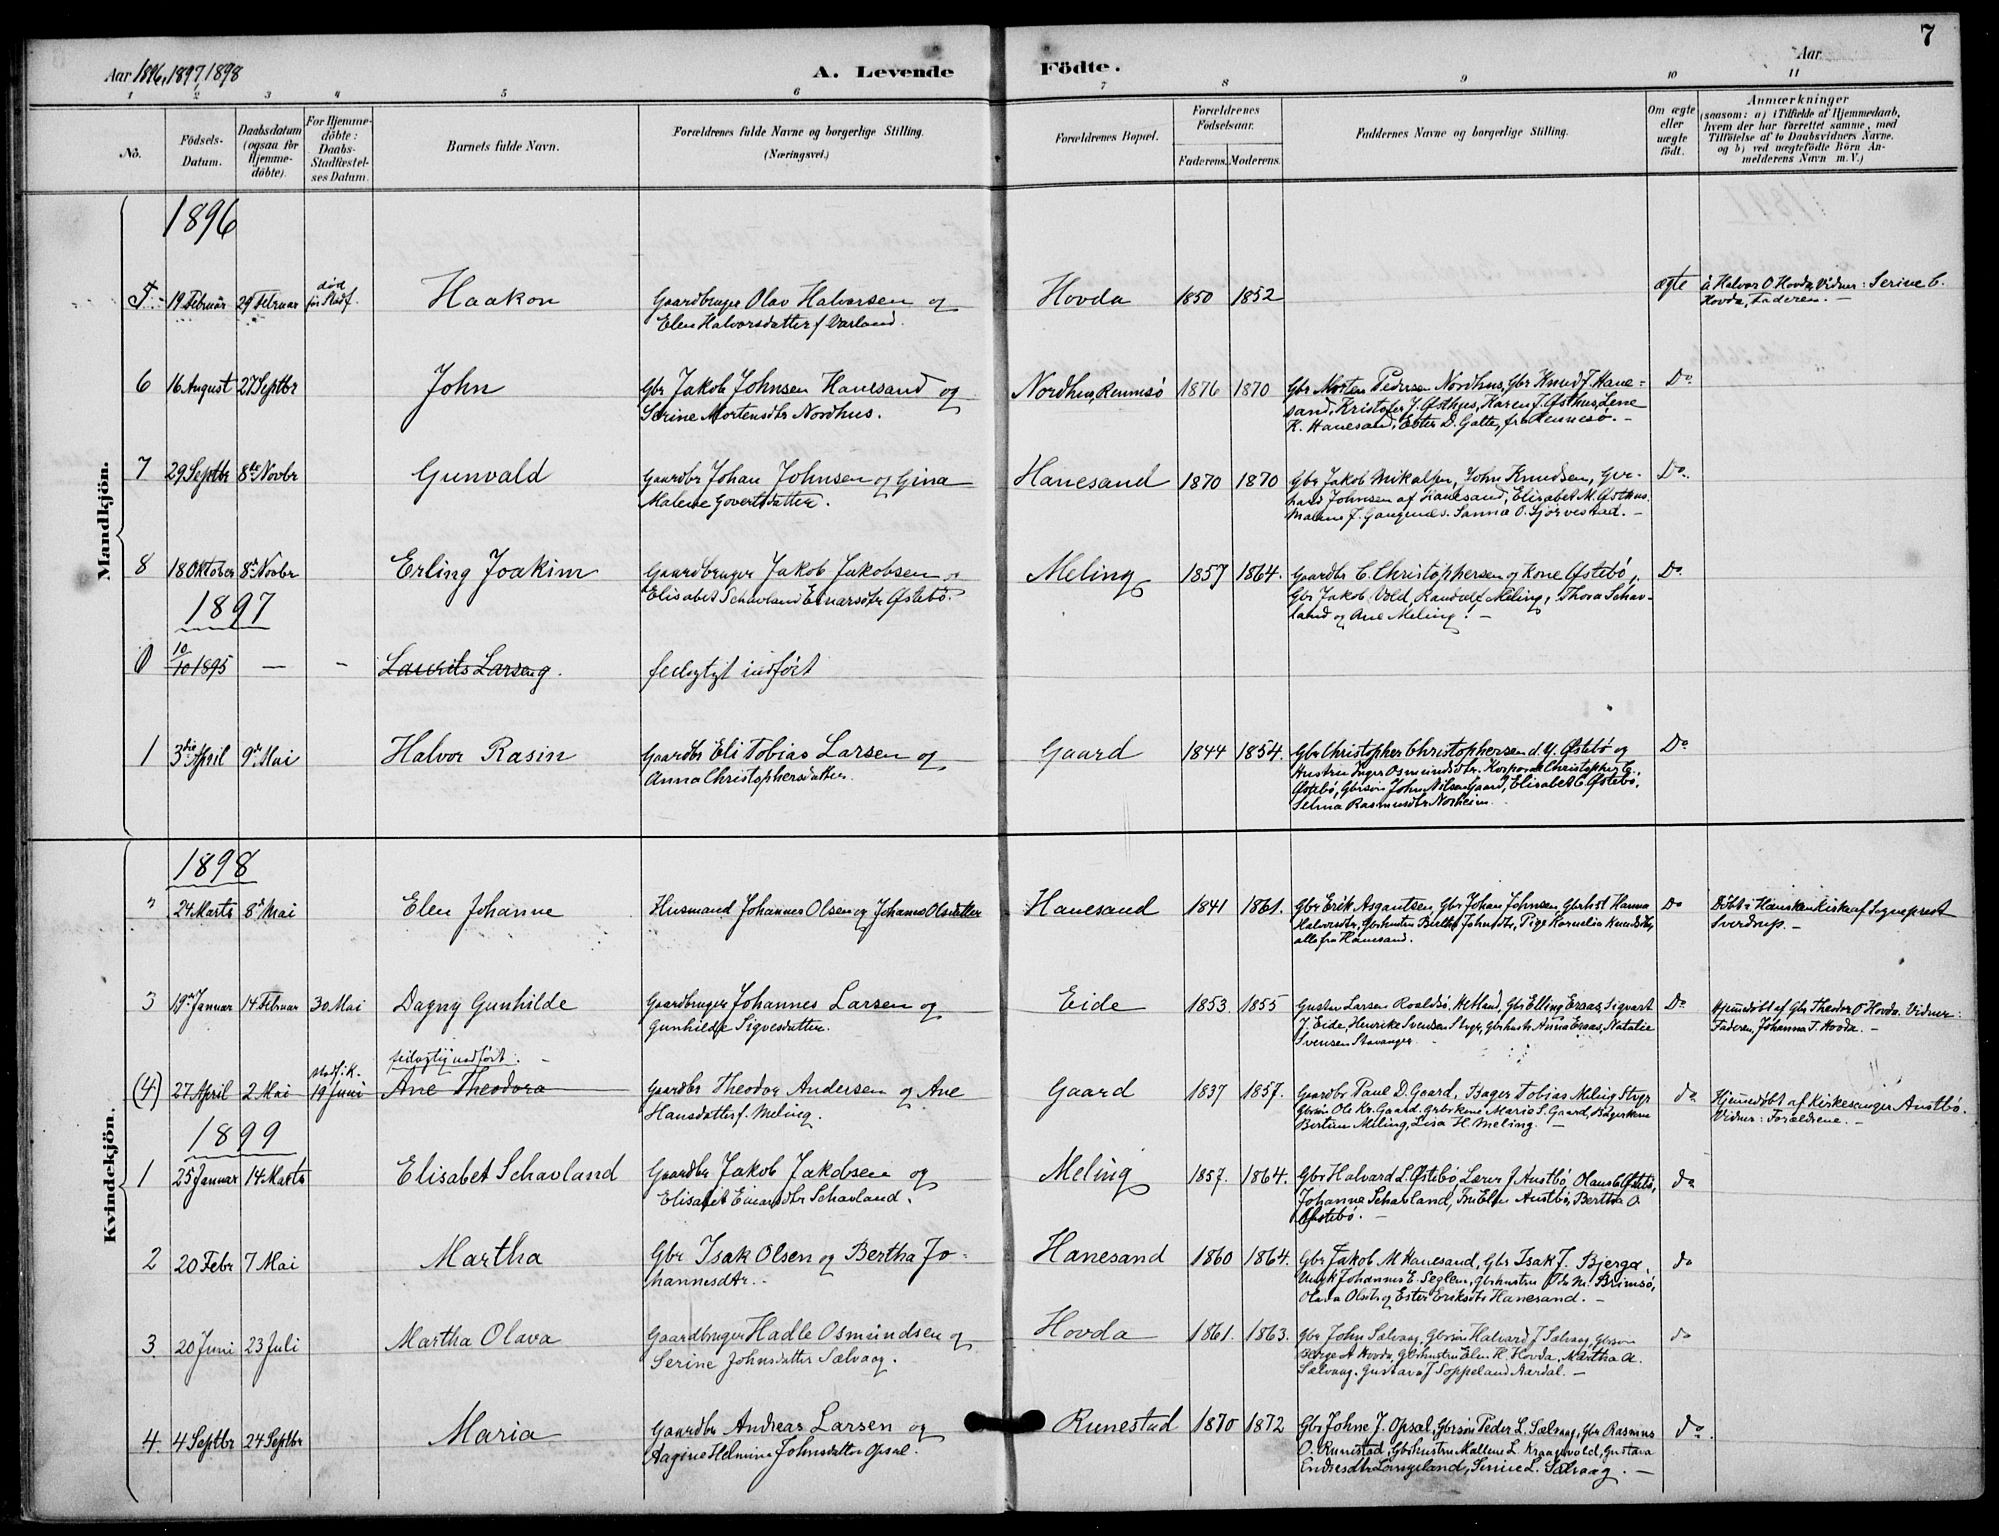 7
Aar 1896, 1897, 1898
A. Levende Födte.
Aar
1 2 3 4 5 6 7 8 9 10 11
No.
Födsels-Datum.
Daabsdatum (ogsaa for Hjemme-döbte).
For Hjemme-döbte: Daabs-Stadfæstel-ses Datum.
Barnets fulde Navn.
Forældrenes fulde Navne og borgerlige Stilling.
(Næringsvei.)
Forældrenes Bopæl.
Forældrenes Födselsaar.
Faderens. Moderens.
Faddernes Navne og borgerlige Stilling.
Om ægte eller uægte födt.
Anmærkninger
(saasom: a) i Tilfælde af Hjemmedaab, hvem der har forrettet samme, med Tilföielse af to Daabsvidners Navne. og b) ved uægtefödte Börn An-melderens Navn m. V.)
Mandkjön.
1896
5 19 Februar 29 Februar død før Stadf. Haakon Gaardbruger Olav Halvorsen og Hovda 1850 1852 ægte a Halvor O Hovda, Vidner: Serine C.
Elen Halvorsdatter f Varland. Hovda, Faderen. —
6 16 August 27 Septbr John Gbr Jakob Johnsen Hanesand og Nordhus, Rennesø 1876 1870 Gbr Morten Pedersen Nordhus, Gbr Knud J. Hane= Do
Serine Mortensdtr Nordhus. sand, Kristofer J. Østhus, Karen J. Østhus, Lene
K. Hanesand, Ester D. Galte, fra Rennesø. —
7 29 Septbr 8de Novbr Gunvald Gaardbr Johan Johnsen og Gina Hanesand 1870 1870 Gbr Jakob Mikalsen, John Knudsen, Ger- Do
Malene Govertsdatter. hard Johnsen af Hanesand, Elisabet M. Østhus
Malene J. Gangenæs. Sanna O. Sjørvestad. —
8 18 Oktober 8de Novbr Erling Joakim Gaardbruger Jakob Jakobsen og Meling 1857 1864. Gaardbr C. Christophersen og Kone Østebø, Do
Elisabet Schavland Einarsdtr Østebø. Gbr Jakob Vold, Randulf Meling, Thora Schav-
land og Ane Meling. —
1897
0 10/10 1895 — — Laurits Larseng. feilagtigt indført
1 3die April 9de Mai Halvor Rasin Gaardbr Eli Tobias Larsen og Gaard 1844 1854. Gbr Christopher Christophersen d. y. Østebø og Do
Anna Christophersdatter. Hustru Inger Osmundsdtr. Korporal Christopher C.
Østebø, Gbrsøn John Nilsen Gaard, Elisabet C. Østebø,
Selma Rasmusdtr Norheim.
Kvindekjön.
1898
" 24 Marts 8de Mai Elen Johanne Husmand Johannes Olsen og Johanne Olsdatter Hanesand 1841 1861. Gbr Erik Asgautsen, Gbr Johan Johnsen, Gbrhst Hanna Do Døbt i Hausken Kirke af Sogneprest
Halvorsdtr, Gbrhustru Berthe Johnsdtr, Pige Kornelia Knudsdtr, Sverdrup. —
alle fra Hanesand.
3 19de Januar 14 Februar 30 Mai Dagny Gunhilde Gaardbruger Johannes Larsen og Eide 1853. 1855 Gustav Larsen Roaldsø, Hetland, Gbr Elling Eraas, Sigvart Do Hjemdøbt af Gbr Theodor O Hovda. Vidner:
Gunhilde Sigvesdatter. J Eide, Henrike Svensen Stvgr, Gbrhustr Anna Eraas, Natalie Faderen, Johanna T. Hovda. —
Svensen Stavanger.
feilagtig indført. —
(4) 27 April 2 Mai stadf. i K. 19 Juni Ane Theodora Gaardbr Theodor Andersen og Ane Gaard 1837 1857. Gaardbr Paul D. Gaard, Bager Tobias Meling Stvgr do Hjemdøbt af Kirkesanger Austbø.
Hansdatter f. Meling. Gbrsøn Ole Kr. Gaard, Gbrkone Marie S. Gaard, Bagerkone Vidner: Forældrene. —
Bertine Meling, Lisa H. Meling. —
1899
1 25 Januar 14 Marts Elisabet Schavland Gaardbr Jakob Jakobsen og Meling 1857. 1864. Gbr Halvard L. Østebø, Lærer J Austbø, Olaus C Østebø, do
Elisabet Einarsdtr Schavland. Johanne Schavland, Fru Elen Austbø, Bertha O
Østebø. —
2 20 Febr 7 Mai Martha Gbr Isak Olsen og Bertha Jo- Hanesand 1860 1864. Gbr Jakob M Hanesand, Gbr Isak J. Bjerga, do
hannesdtr. Ungk Johannes E. Seglem, gbrhustru Ida M. Brimsø,
Olava Olsdtr og Ester Eriksdtr Hanesand. —
3. 20 Juni 23 Juli Martha Olava Gaardbruger Hadle Osmundsen og Hovda 1861. 1863. Gbr John Sælvaag, Gbrsøn Halvard J Sælvaag, Gbrson do
Serine Johnsdatter Sælvaag. Børge A Hovda, Gbrhustru Elen H. Hovda, Martha A.
Sælvaag, Gustava J Soppeland Aardal. —
4. 4 Septbr 24 Septbr Maria Gaardbr Andreas Larsen og Runestad 1870 1872 Gbr Johne J. Opsal, Gbrsøn Peder L. Sælvaag, Gbr Rasmus do.
Aagine Helmine Johnsdatter Opsal. O. Runestad, Gbrhustru Mallene L. Kraagevold, Gustava
Endresdtr Langeland, Serine L. Sælvaag. —